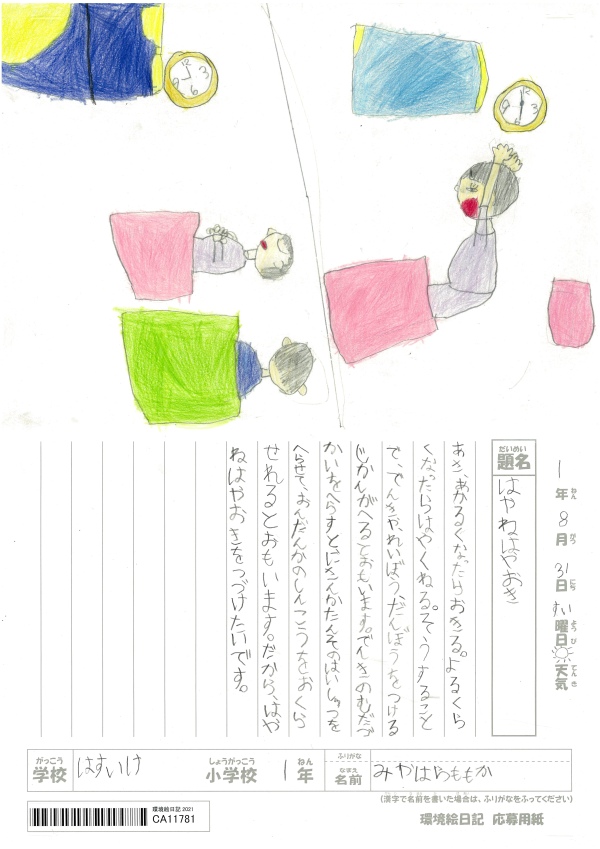 1年ねん 8月がつ 31日にち すい曜日ようび 天気てんき
題名だいめい はやねはやおき
あさ、あかるくなったらおきる。よるくら
くなったらはやくねる。そうすること
で、でんきや、れいぼう、だんぼうをつける
じかんがへるとおもいます。でんきのむだづ
かいをへらすとにさんかたんそのはいしゅつを
へらせて、おんだんかのしんこうをおくら
せれるとおもいます。だから、はや
ねはやおきをつづけたいです。
学校がっこう はすいけ 小学校しょうがっこう 1年ねん
ふりがな
名前なまえ みやはらももか
(漢字で名前を書いた場合は、ふりがなをふってください)
環境絵日記 2021
CA11781
環境絵日記 応募用紙
12 3 6 9
12 3 6 9